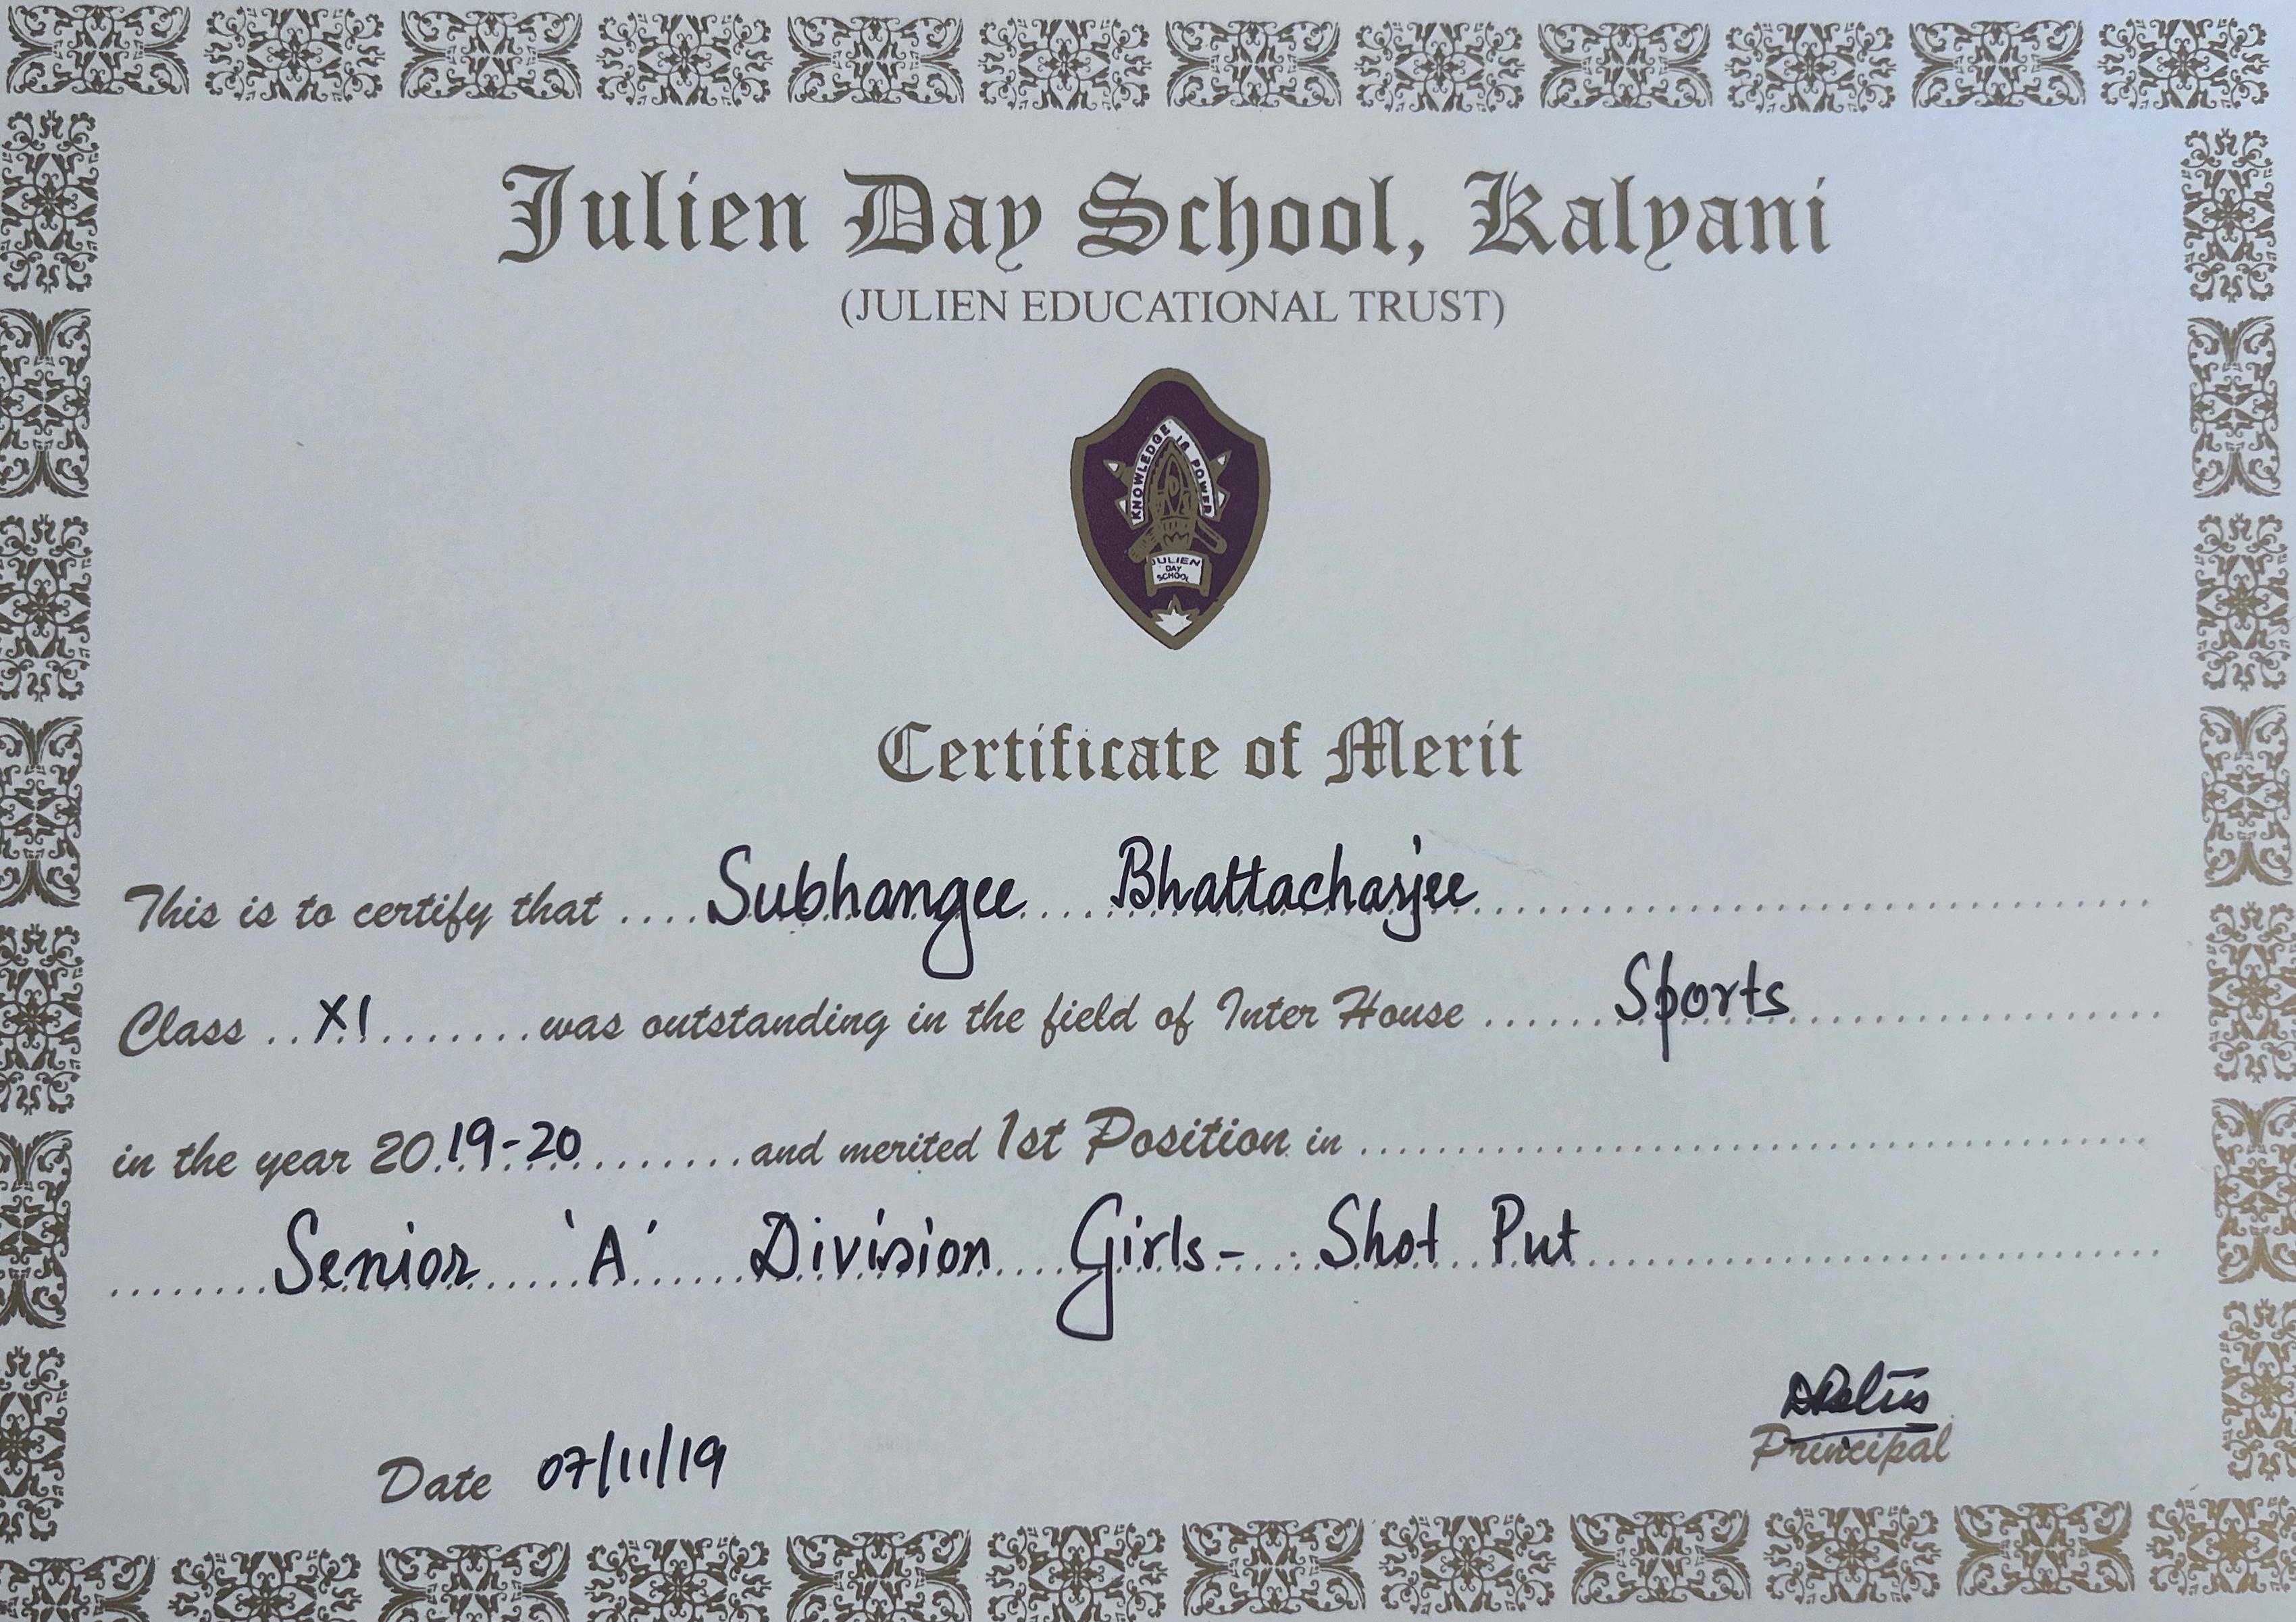 Julien Day School, Kalyani
(JULIEN EDUCATIONAL TRUST)
KNOWLEDGE IS POWER
JULIEN
DAY
SCHOOL
Certificate of Merit
This is to certify that .... Subhangee .... Bhattacharjee ....
Class .. XI ........ was outstanding in the field of Inter House ...... Sports ....
in the year 2019-20 .......... and merited 1st Position in ....
........ Senior ..... 'A' ...... Division .... Girls- .. Shot Put ....
Date 07/11/19
Principal